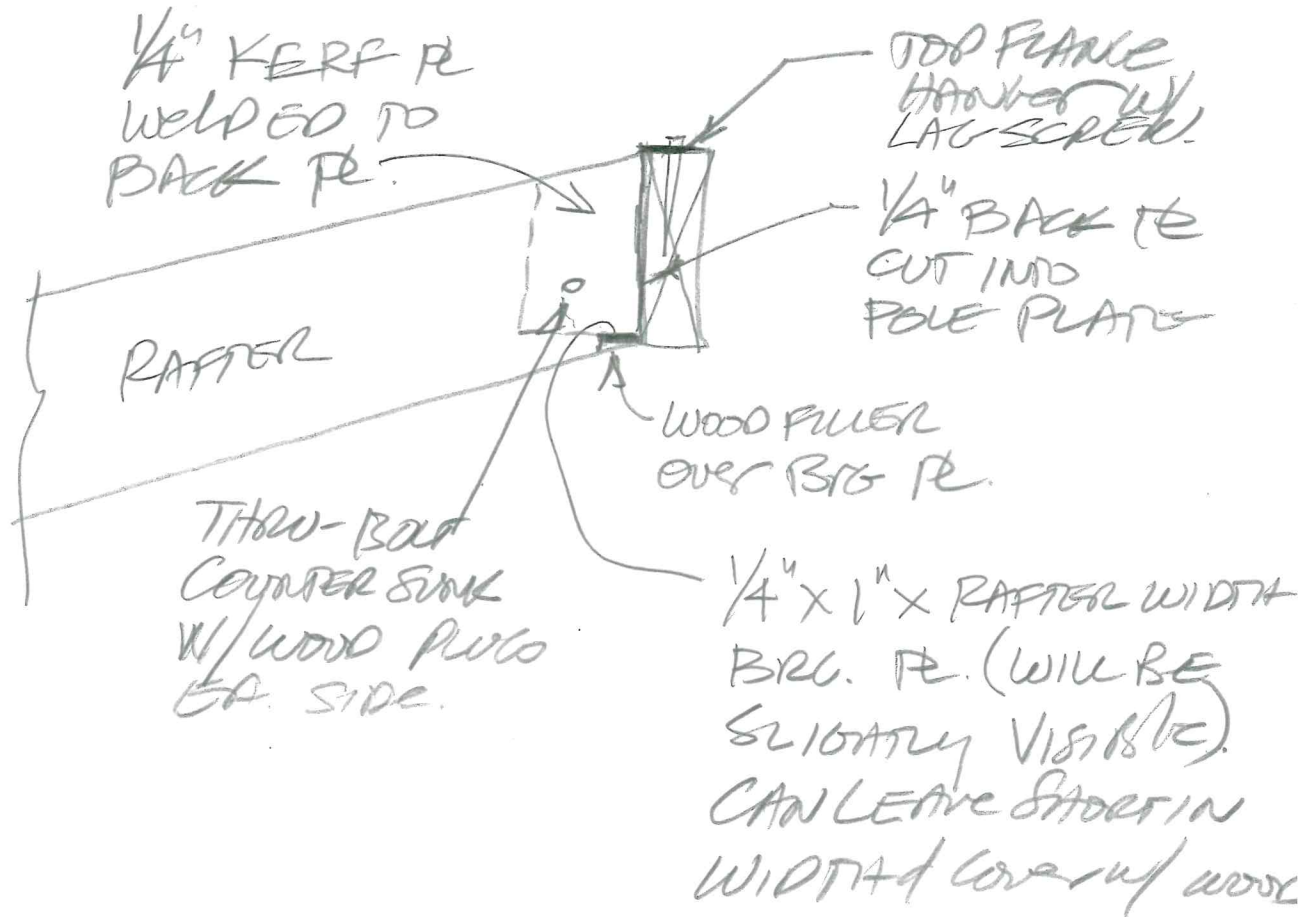 1/4" KERF PL
WELDED TO
BACK PL.
TOP FLANGE
HANGER W/
LAG SCREW.
1/4" BACK PL
CUT INTO
POLE PLATE
RAFTER
WOOD FILLER
OVER BRG PL.
THRU-BOLT
COUNTERSUNK
W/WOOD PLUGS
EA. SIDE.
1/4" X 1" X RAFTER WIDTH
BRG. PL. (WILL BE
SLIGHTLY VISIBLE).
CAN LEAVE SHORT IN
WIDTH & COVER W/ WOOD